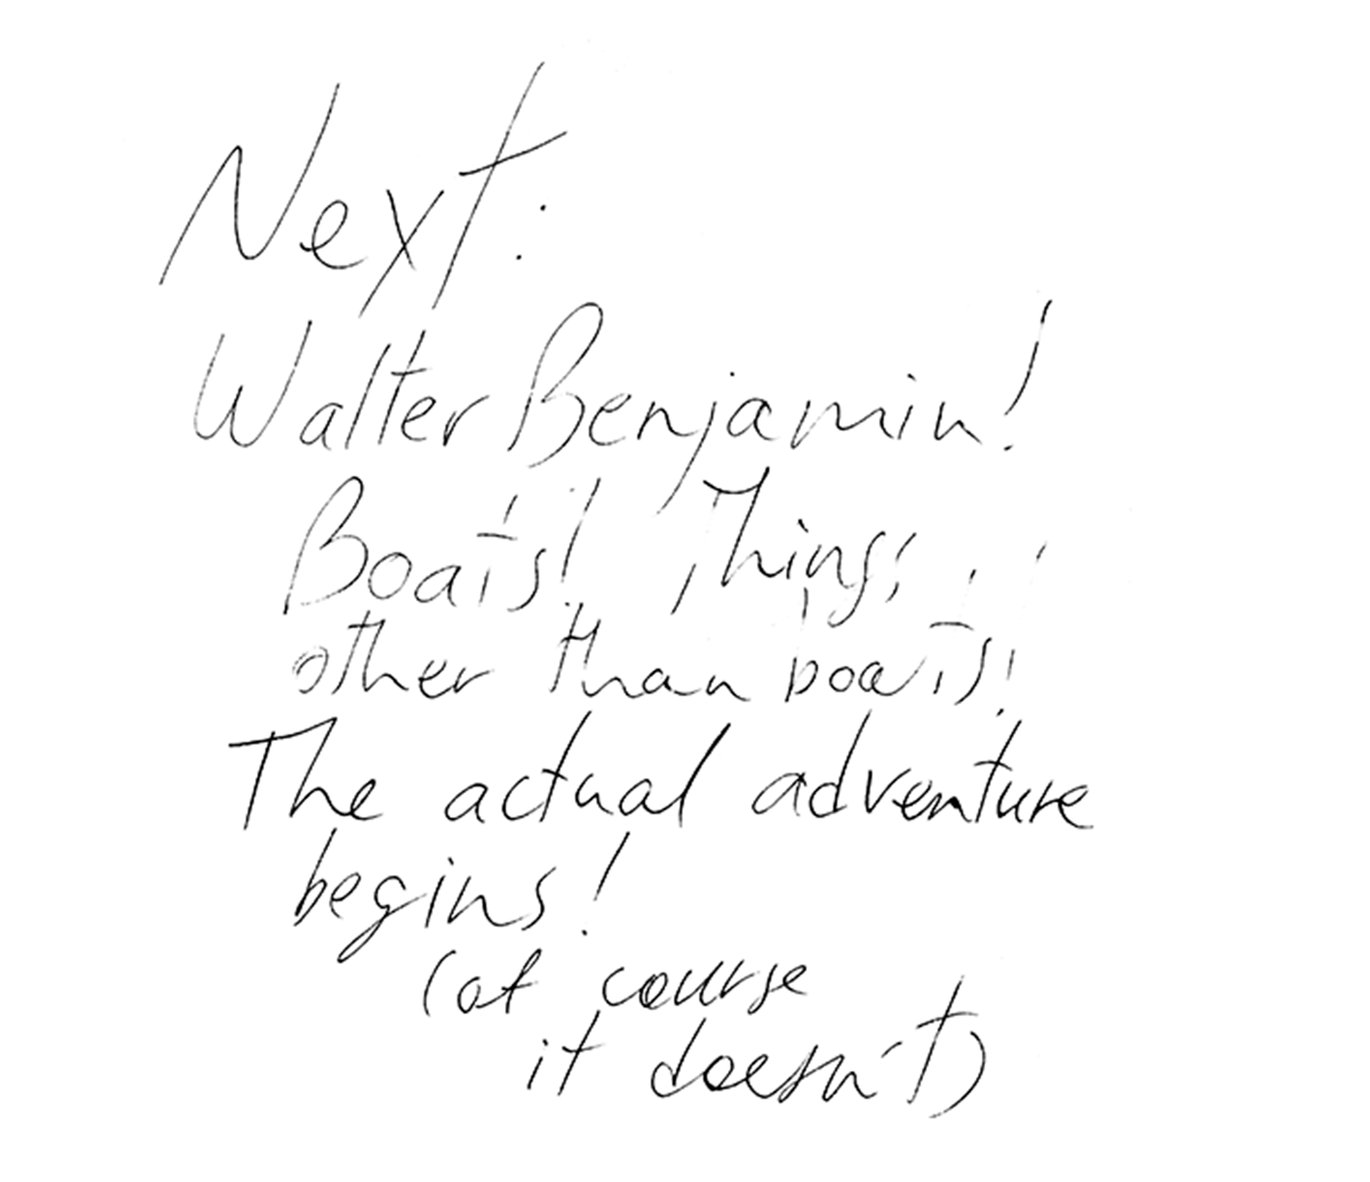 Next:
Walter Benjamin!
Boats! Things
other than boats!
The actual adventure
begins!
(of course
it doesn't)